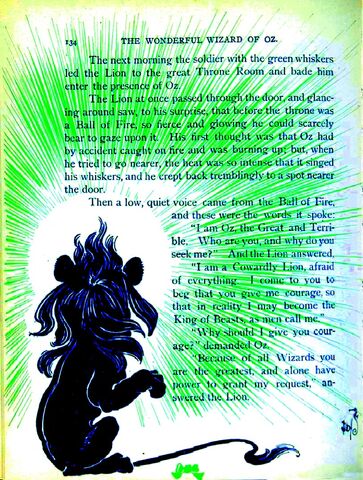 134 THE WONDERFUL WIZARD OF OZ.
The next morning the soldier with the green whiskers
led the Lion to the great Throne Room and bade him
enter the presence of Oz.
The Lion at once passed through the door, and glanc-
ing around saw, to his surprise, that before the throne was
a Ball of Fire, so fierce and glowing he could scarcely
bear to gaze upon it. His first thought was that Oz had
by accident caught on fire and was burning up; but, when
he tried to go nearer, the heat was so intense that it singed
his whiskers, and he crept back tremblingly to a spot nearer
the door.
Then a low, quiet voice came from the Ball of Fire,
and these were the words it spoke:
"I am Oz, the Great and Terri-
ble. Who are you, and why do you
seek me?" And the Lion answered,
"I am a Cowardly Lion, afraid
of everything. I come to you to
beg that you give me courage, so
that in reality I may become the
King of Beasts, as men call me."
"Why should I give you cour-
age?" demanded Oz.
"Because of all Wizards you
are the greatest, and alone have
power to grant my request," an-
swered the Lion.